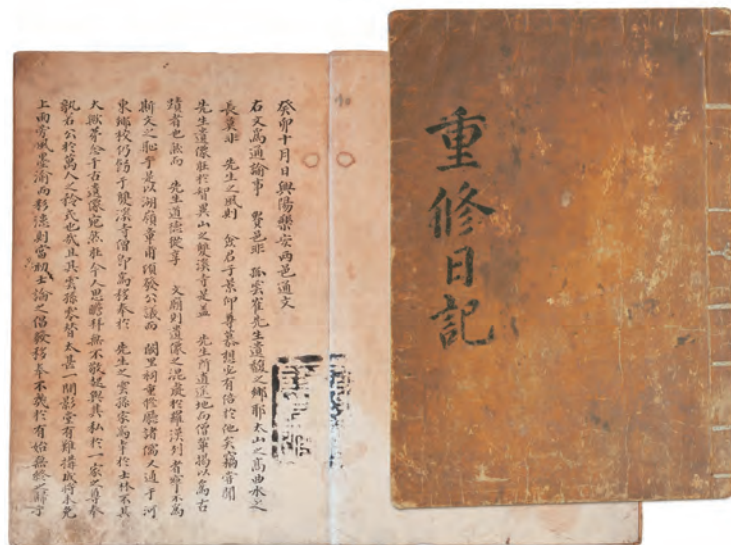 癸卯十月日興陽樂安兩邑通文
右文爲通諭事 賢邑非 孤雲崔先生遺馥之鄕耶太山之高曲水之
長莫非 先生之風則 僉君子景仰尊慕想必有倍於他矣竊嘗聞
先生遺像在於智異山之雙溪寺是盖 先生所過之地而僧輩揭以爲古
蹟者也然而 先生道德從享 文廟則遺像之混處於羅漢列者寧不爲
斯文之恥乎是以湖嶺章甫頃發公議而 闕里祠重修廳諸儒人通于河
東鄕校仍飭于雙溪寺僧卽爲移奉於 先生之雲孫家爲 於士林不其
大歟第念千古遺像宛然在今人思瞻拜無不敬起與其私於一家之尊奉
孰若公於萬人之矜式也哉且其雲孫 甚一間影堂有難搆成將未免
上雨旁風墨渝而彩漆則當初士論之倡發移奉不幾於有始無終之 乎
重修日記